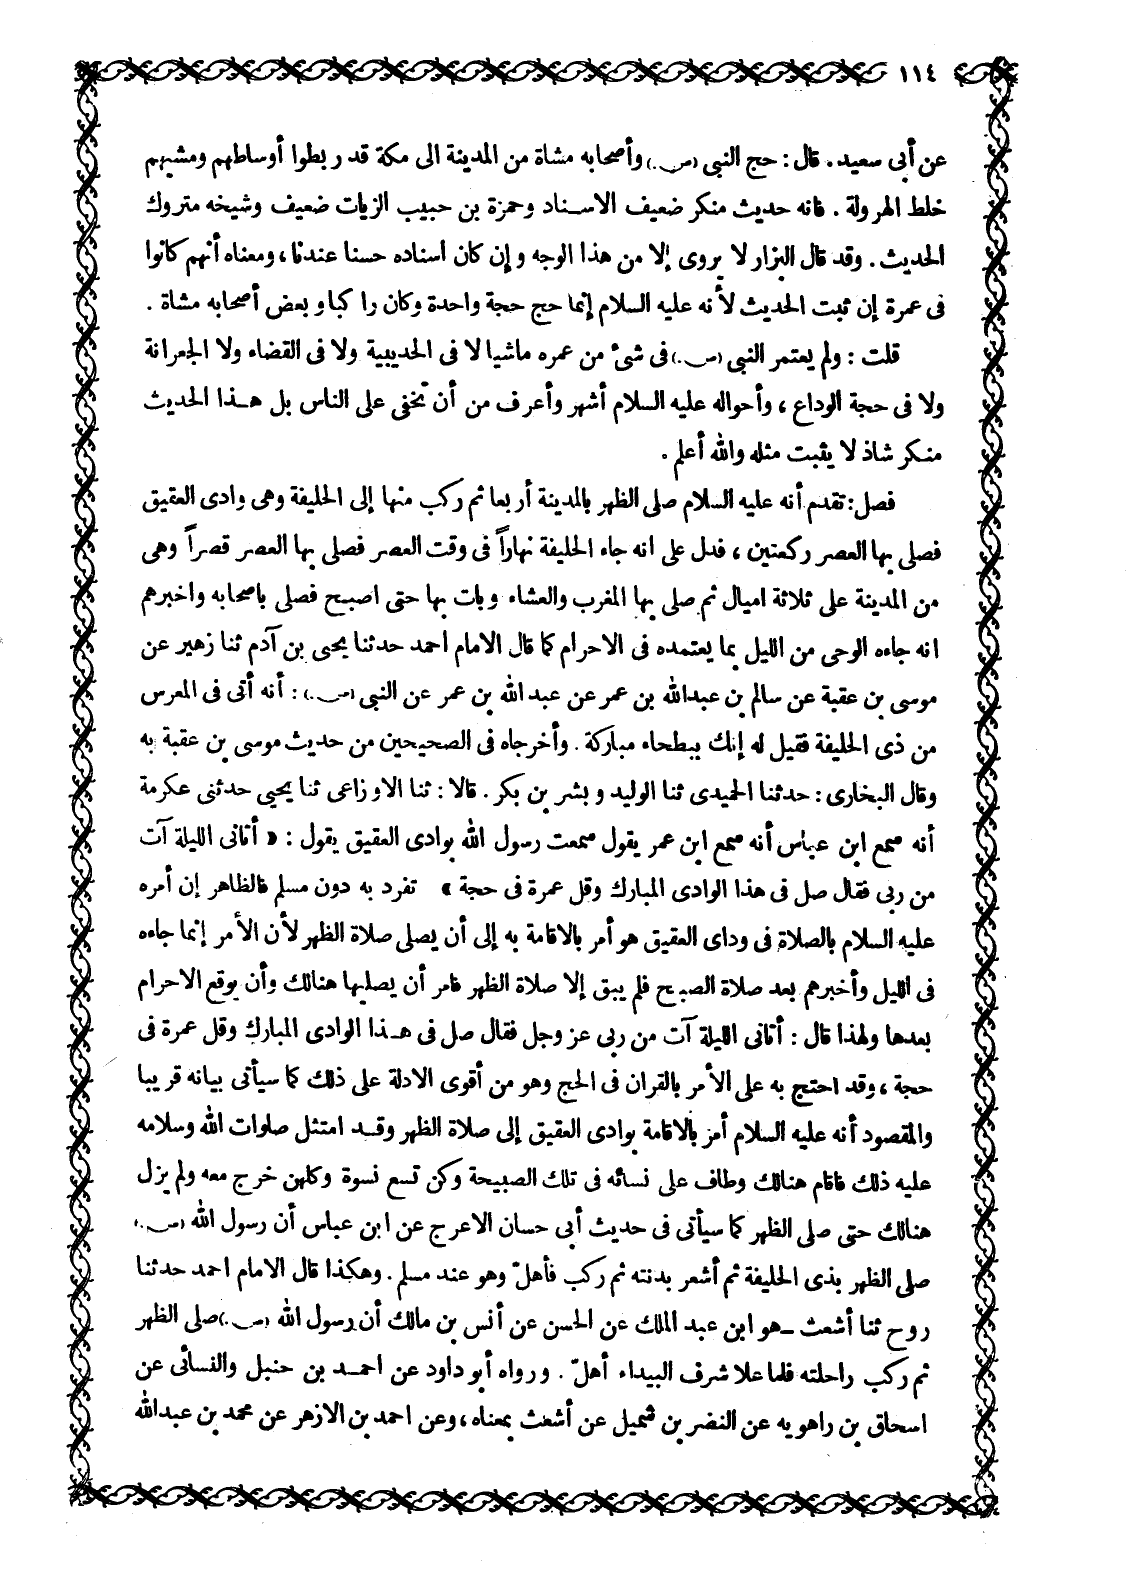 ١١٤
عن أبى سعيد . قال : حج النبى (ص.) وأصحابه مشاة من المدينة الى مكة قد ربطوا أوساطهم ومشيهم
خلط الهرولة . فانه حديث منكر ضعيف الاسناد وحمزة بن حبيب الزيات ضعيف وشيخه متروك
الحديث . وقد قال البزار لا يروى إلا من هذا الوجه وإن كان اسناده حسنا عندنا ، ومعناه أنهم كانوا
فى عمرة إن ثبت الحديث لأنه عليه السلام إنما حج حجة واحدة وكان راكبا وبعض أصحابه مشاة .
قلت : ولم يعتمر النبى (ص.) فى شئ من عمره ماشيا لا فى الحديبية ولا فى القضاء ولا الجعرانة
ولا فى حجة الوداع ، وأحواله عليه السلام أشهر وأعرف من أن تخفى على الناس بل هذا الحديث
منكر شاذ لا يثبت مثله والله أعلم .
فصل : تقدم أنه عليه السلام صلى الظهر بالمدينة أربعا ثم ركب منها إلى الحليفة وهى وادى العقيق
فصلى بها العصر ركعتين ، فدل على انه جاء الحليفة نهاراً فى وقت العصر فصلى بها العصر قصراً وهى
من المدينة على ثلاثة اميال ثم صلى بها المغرب والعشاء وبات بها حتى اصبح فصلى باصحابه واخبرهم
انه جاءه الوحى من الليل بما يعتمده فى الاحرام كما قال الامام احمد حدثنا يحيى بن آدم ثنا زهير عن
موسى بن عقبة عن سالم بن عبدالله بن عمر عن عبد الله بن عمر عن النبى (ص.) : أنه أتى فى المعرس
من ذى الحليفة فقيل له إنك ببطحاء مباركة . وأخرجاه فى الصحيحين من حديث موسى بن عقبة به
وقال البخارى : حدثنا الحميدى ثنا الوليد وبشر بن بكر . قالا : ثنا الاوزاعى ثنا يحيى حدثنى عكرمة
أنه سمع ابن عباس أنه سمع ابن عمر يقول سمعت رسول الله بوادى العقيق يقول : « أتانى الليلة آت
من ربى فقال صل فى هذا الوادى المبارك وقل عمرة فى حجة » تفرد به دون مسلم فالظاهر إن أمره
عليه السلام بالصلاة فى وداى العقيق هو أمر بالاقامة به إلى أن يصلى صلاة الظهر لأن الأمر إنما جاءه
فى الليل وأخبرهم بعد صلاة الصبح فلم يبق إلا صلاة الظهر فامر أن يصليها هنالك وأن يوقع الاحرام
بعدها ولهذا قال : أتانى الليلة آت من ربى عز وجل فقال صل فى هذا الوادى المبارك وقل عمرة فى
حجة ، وقد احتج به على الأمر بالقران فى الحج وهو من أقوى الادلة على ذلك كما سيأتى بيانه قريبا
والمقصود أنه عليه السلام أمر بالاقامة بوادى العقيق إلى صلاة الظهر وقد امتثل صلوات الله وسلامه
عليه ذلك فاقام هنالك وطاف على نسائه فى تلك الصبيحة وكن تسع نسوة وكلهن خرج معه ولم يزل
هنالك حتى صلى الظهر كما سيأتى فى حديث أبى حسان الاعرج عن ابن عباس أن رسول الله (ص.)
صلى الظهر بذى الحليفة ثم أشعر بدنته ثم ركب فأهلّ وهو عند مسلم . وهكذا قال الامام احمد حدثنا
روح ثنا أشعث ــ هو ابن عبد الملك عن الحسن عن أنس بن مالك أن رسول الله (ص.) صلى الظهر
ثم ركب راحلته فلما علا شرف البيداء أهلّ . ورواه أبو داود عن احمد بن حنبل والنسائى عن
اسحاق بن راهويه عن النضر بن شميل عن أشعث بمعناه ، وعن احمد بن الازهر عن محمد بن عبدالله